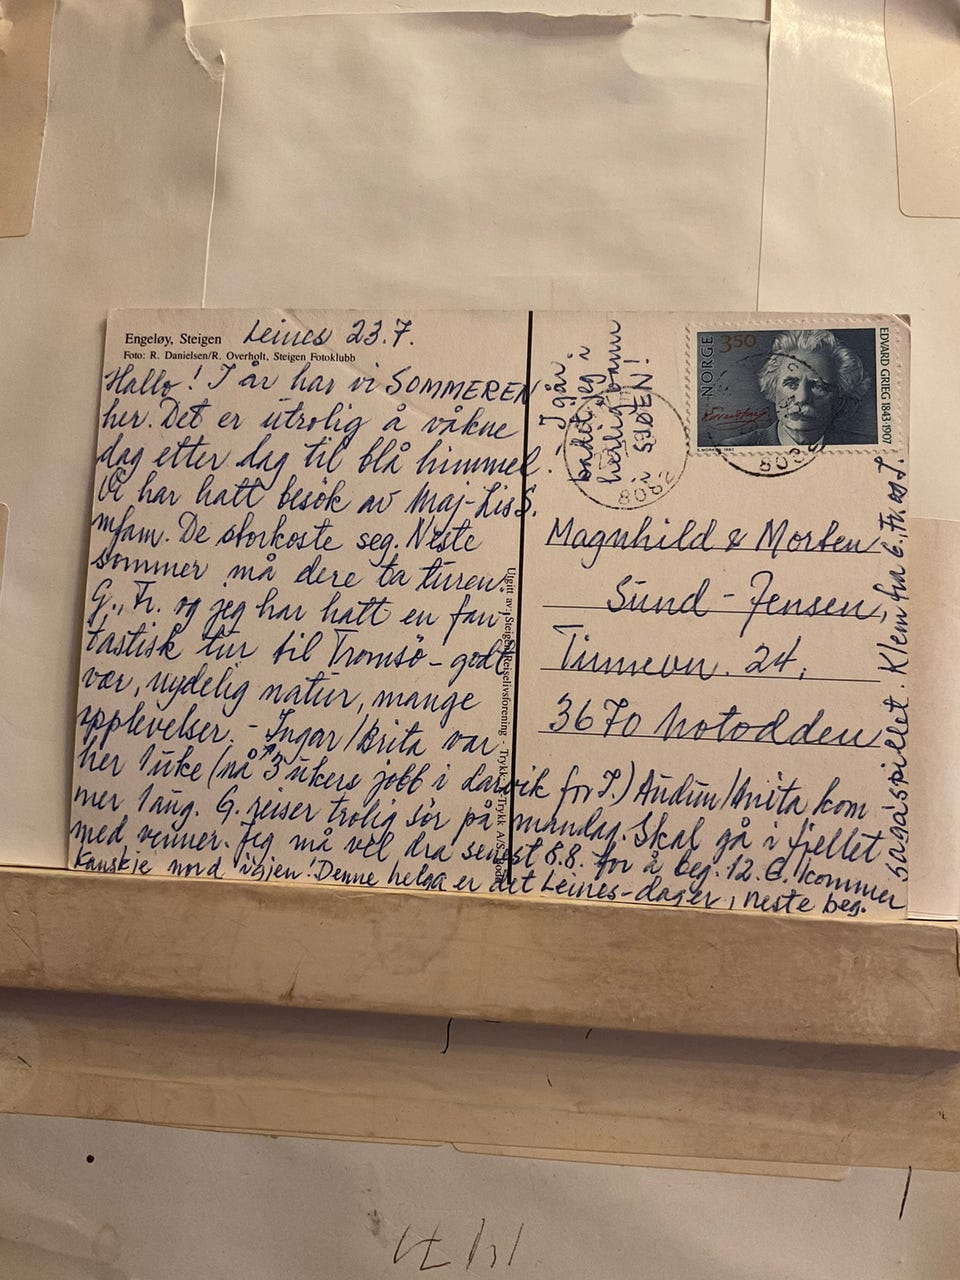 Engeløy, Steigen
Foto: R. Danielsen/R. Overholt, Steigen Fotoklubb
Leines 23.7.
Hallo! I år har vi SOMMEREN
her. Det er utrolig å våkne
dag etter dag til blå himmel.
Vi har hatt besøk av Maj-Lis S.
m/fam. De storkoste seg. Neste
sommer må dere ta turen.
G., Tr. og jeg har hatt en fan-
tastisk tur til Tromsø - godt
vær, nydelig natur, mange
opplevelser. - Ingar/Brita var
her 1 uke (nå 3 ukers jobb i
for I.) Audun/Anita kom
mer 1 aug. G. reiser trolig sør på mandag. Skal gå i fjellet
med venner. Jeg må vel dra senest 8.8. for å beg. 12. G. kommer
kanskje nord igjen! Denne helga er det Leines-dager, neste beg.
sagaspillet. Klem fra G., Tr. og I.
I går
badet jeg i
herlig vann
i SJØEN!
Utgitt av: Steigen Reiselivsforening - Trykk: -Trykk A/S,
NORGE
350
EDVARD GRIEG 1843-1907
Magnhild & Morten
Sund-Jensen,
Tinnevn. 24,
3670 Notodden